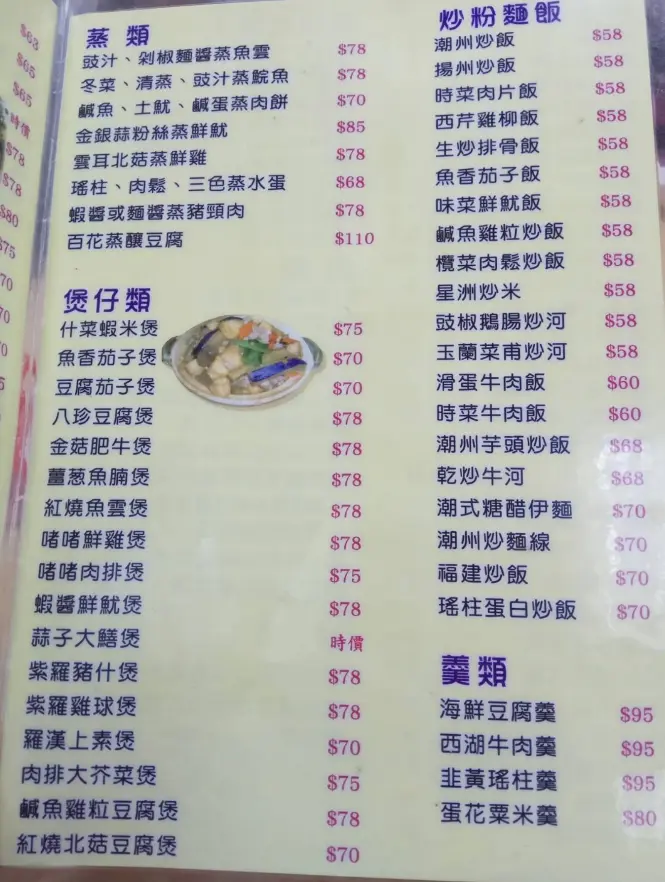 $63
$65
$65
時價
$78
$78
$80
蒸類
豉汁、剁椒麵醬蒸魚雲 $78
冬菜、清蒸、豉汁蒸鯇魚 $78
鹹魚、土魷、鹹蛋蒸肉餅 $70
金銀蒜粉絲蒸鮮魷 $85
雲耳北菇蒸鮮雞 $78
瑤柱、肉鬆、三色蒸水蛋 $68
蝦醬或麵醬蒸豬頸肉 $78
百花蒸釀豆腐 $110
煲仔類
什菜蝦米煲 $75
魚香茄子煲 $70
豆腐茄子煲 $70
八珍豆腐煲 $78
金菇肥牛煲 $78
薑葱魚腩煲 $78
紅燒魚雲煲 $78
啫啫鮮雞煲 $78
啫啫肉排煲 $75
蝦醬鮮魷煲 $78
蒜子大鱔煲 時價
紫羅豬什煲 $78
紫羅雞球煲 $78
羅漢上素煲 $70
肉排大芥菜煲 $75
鹹魚雞粒豆腐煲 $78
紅燒北菇豆腐煲 $70
炒粉麵飯
潮州炒飯 $58
揚州炒飯 $58
時菜肉片飯 $58
西芹雞柳飯 $58
生炒排骨飯 $58
魚香茄子飯 $58
味菜鮮魷飯 $58
鹹魚雞粒炒飯 $58
欖菜肉鬆炒飯 $58
星洲炒米 $58
豉椒鵝腸炒河 $58
玉蘭菜甫炒河 $58
滑蛋牛肉飯 $60
時菜牛肉飯 $60
潮州芋頭炒飯 $68
乾炒牛河 $68
潮式糖醋伊麵 $70
潮州炒麵線 $70
福建炒飯 $70
瑤柱蛋白炒飯 $70
羹類
海鮮豆腐羹 $95
西湖牛肉羹 $95
韭黃瑤柱羹 $95
蛋花粟米羹 $80